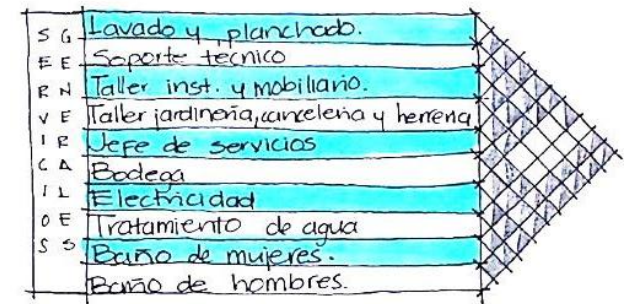 SERVICIOS
GENERALES
Lavado y planchado.
Soporte tecnico
Taller inst. y mobiliario.
Taller jardineria, canceleria y herreria
Jefe de servicios
Bodega
Electricidad
Tratamiento de agua
Baño de mujeres.
Baño de hombres.